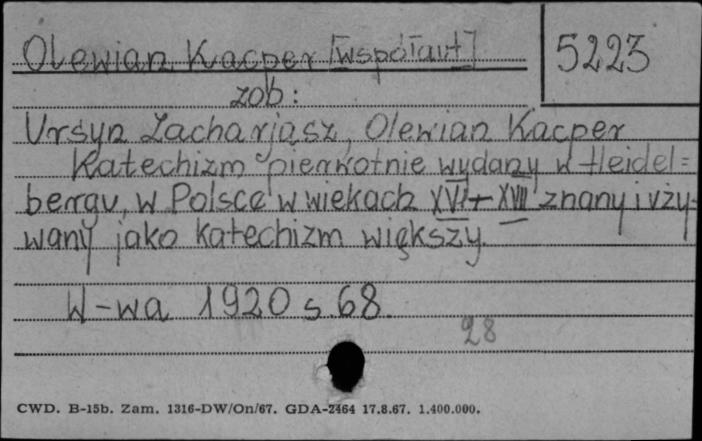 Olewian Kacper [współaut] 5223
zob:
Ursyn Zacharjasz, Olewian Kacper
Katechizm pierwotnie wydany w Heidel=
bergu, w Polsce w wiekach XVI + XVII znany i uży-
wany jako katechizm większy.
W-wa 1920 s. 68.
28
CWD. B-15b. Zam. 1316-DW/On/67. GDA-2464 17.8.67. 1.400.000.